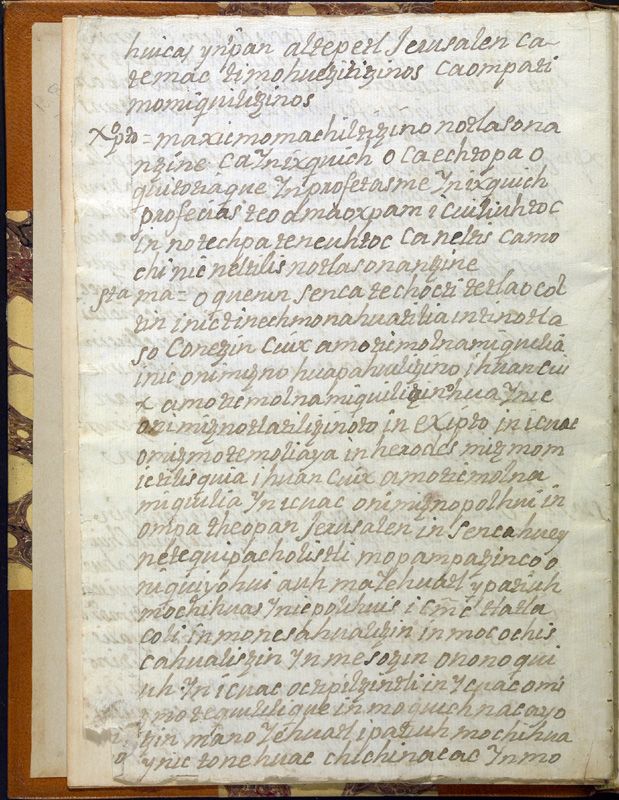 huicas ynpan altepetl Jerusalen Ca
temac timohuetzitizinos Caompati
momiquilitzinos
Xpto = maxicmomachiltitzino notlasona
ntzine Ca Ynixquich O Caechtopa o
quitotiaque Yn profetasme Ynixquich
profecias teoamaoxpam icuiliuhtoc
in notechpa teneuhtoc Ca neltis Camo
chi nic neltilis notlasonantzine
sta ma = o quenin senca techocti tetlaocol
tin inic tinechmonahuatilia intinotla
so Conetzin Cuix amo ticmolnamiquilia
inic onimitzno huapahuilitzino ihuan cui
x amo ticmolnamiquilitzinohua Ynic
onimitznotlatilitzinoto in Exipto in icuac
omitzmotemoliaya in herodes mitzmom
ictilisquia ihuan Cuix amo ticmolna
miquilia Yn icuac onimitznopolhui in
ompa theopan Jerusalen in senca huey
netequipacholistli mopampatzinco o
niquiyohui auh ma tehuatl ypatiuh
mochihuas Ynic polihuis i cmc tlatla
coli in monesahualitzin in mocochis
cahualistzin Yn mesotzin ononoqui
uh Yn icuac oc tipiltzintli in Ycuac omi
tzmotequilique in moquichnacayo
tzin mano Yehuatl ipatiuh mochihua
ynic tonehuac chichinacac Ynmo